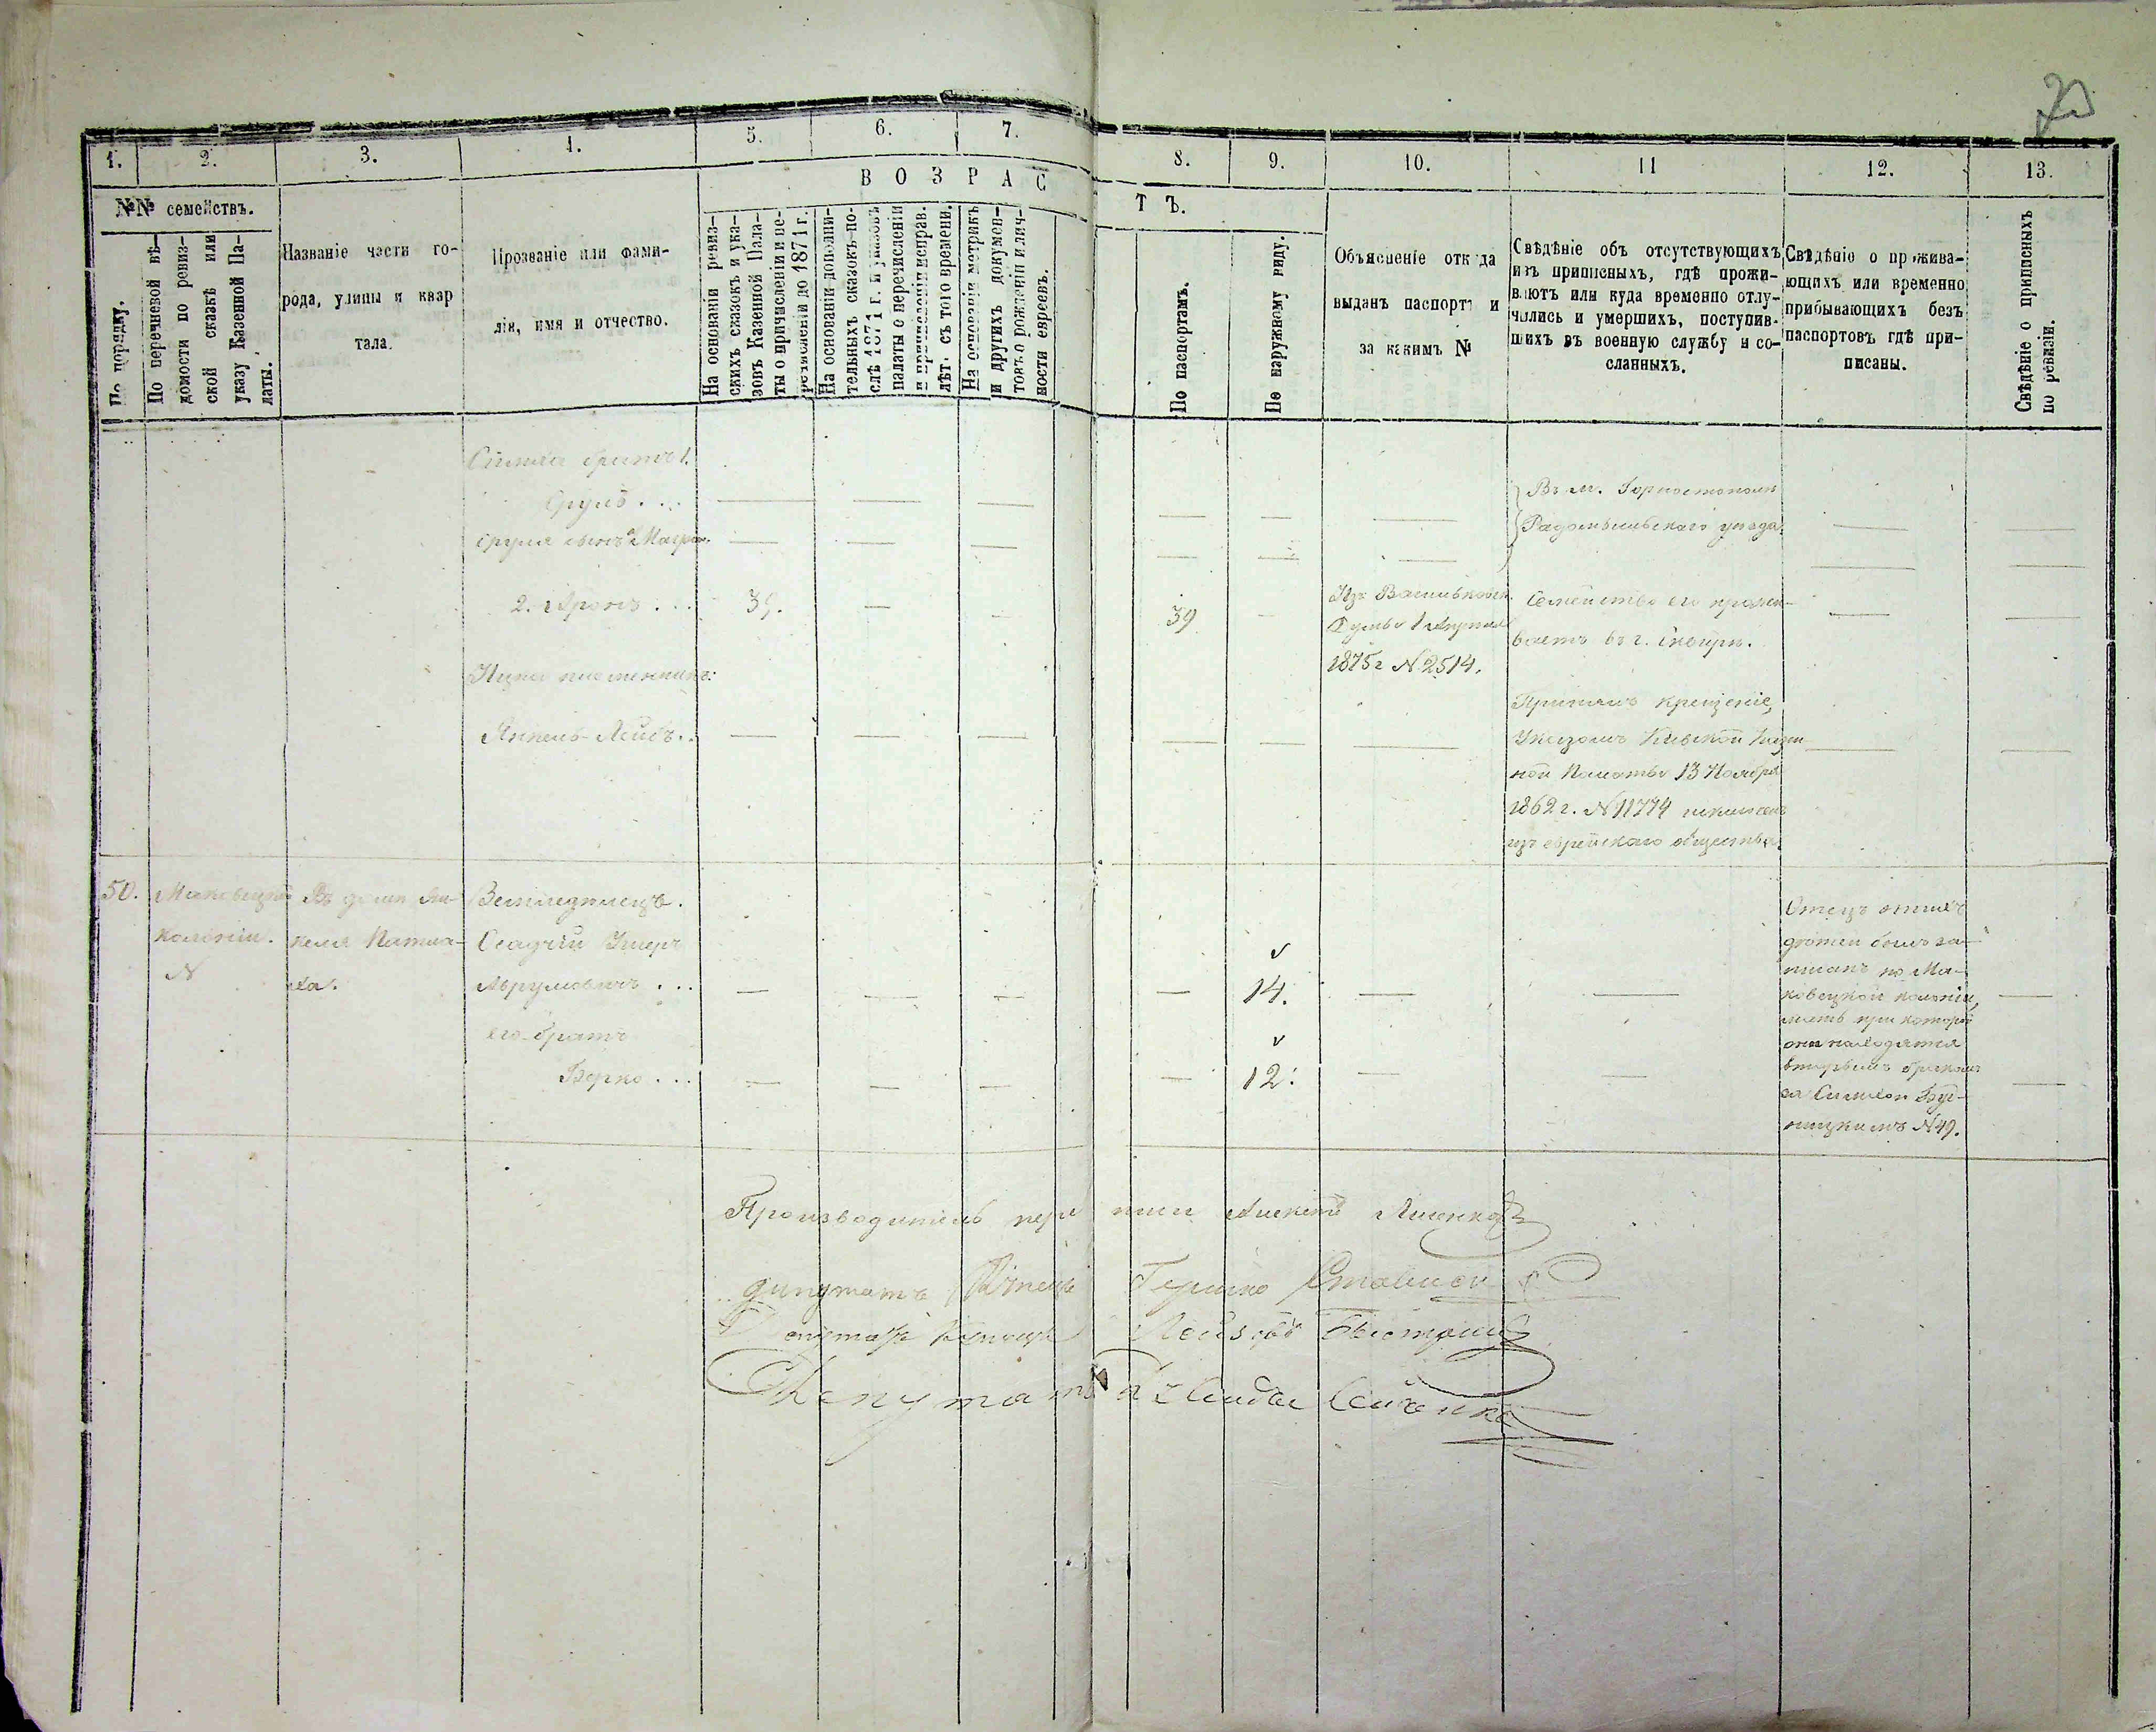 1. 2. 3. 4. 5. 6. 7. 8. 9. 10. 11 12. 13.
В О З Р А С Т Ъ.
№№ семействъ.
По порядку.
По перечневой вѣ-
домости по ревиз-
ской сказкѣ или
указу Казенной Па-
латы.
Названіе части го-
рода, улицы и квар
тала.
Прозваніе или фами-
лія, имя и отчество.
На основаніи ревиз-
скихъ сказокъ и ука-
зовъ Казенной Пала-
ты о причисленіи и пе-
речисленіи до 1871 г.
На основаніи дополни-
тельныхъ сказокъ по-
слѣ 1871 г. и указовъ
палаты о перечисленіи
и причисленіи исправ.
лѣт. съ того времени.
На основаніи метрикъ
и другихъ докумен-
товъ о рожденіи и лич-
ности евреевъ.
По паспортамъ.
По наружному виду.
Объясненіе откуда
выданъ паспортъ и
за какимъ №
Свѣдѣніе объ отсутствующихъ
изъ приписныхъ, гдѣ прожи-
ваютъ или куда временно отлу-
чились и умершихъ, поступив-
шихъ въ военную службу и со-
сланныхъ.
Свѣдѣніе о прожива-
ющихъ или временно
прибывающихъ безъ
паспортовъ гдѣ при-
писаны.
Свѣдѣніе о приписныхъ
по ревизіи.
Симхи братъ 1.
Сруль . . .
Сруля сынъ
Въ м. Горностополѣ
Радомысльскаго уѣзда.
2. Аронъ . . . 39. 39
Изъ Васильковск.
Думы 1 Апрѣля
1875 г № 2514.
Семейство его прожи-
ваетъ въ г. Сквирѣ.
Ицка племянникъ:
Янкель-Лейбъ . .
Принялъ крещеніе,
Указомъ Кіевской Казен-
ной Палаты 13 Ноября
1862 г. № 11774 исключенъ
изъ еврейскаго общества.
50. Маковецкой Въ домѣ Ян- Земледѣлецъ.
колоніи. келя Осадчій Ушеръ
N ха. Аврумовичъ . . . 14.
его братъ
Берко . . . 12.
Отецъ этихъ
дѣтей былъ за-
писанъ по Ма-
ковецкой колоніи,
мать при которой
они находятся
вторымъ бракомъ
за Симхою Буд-
ницкимъ № 49.
Производитель переписи Алексѣй
депутатъ Гершко
Депутатъ Купецъ
Депутатъ